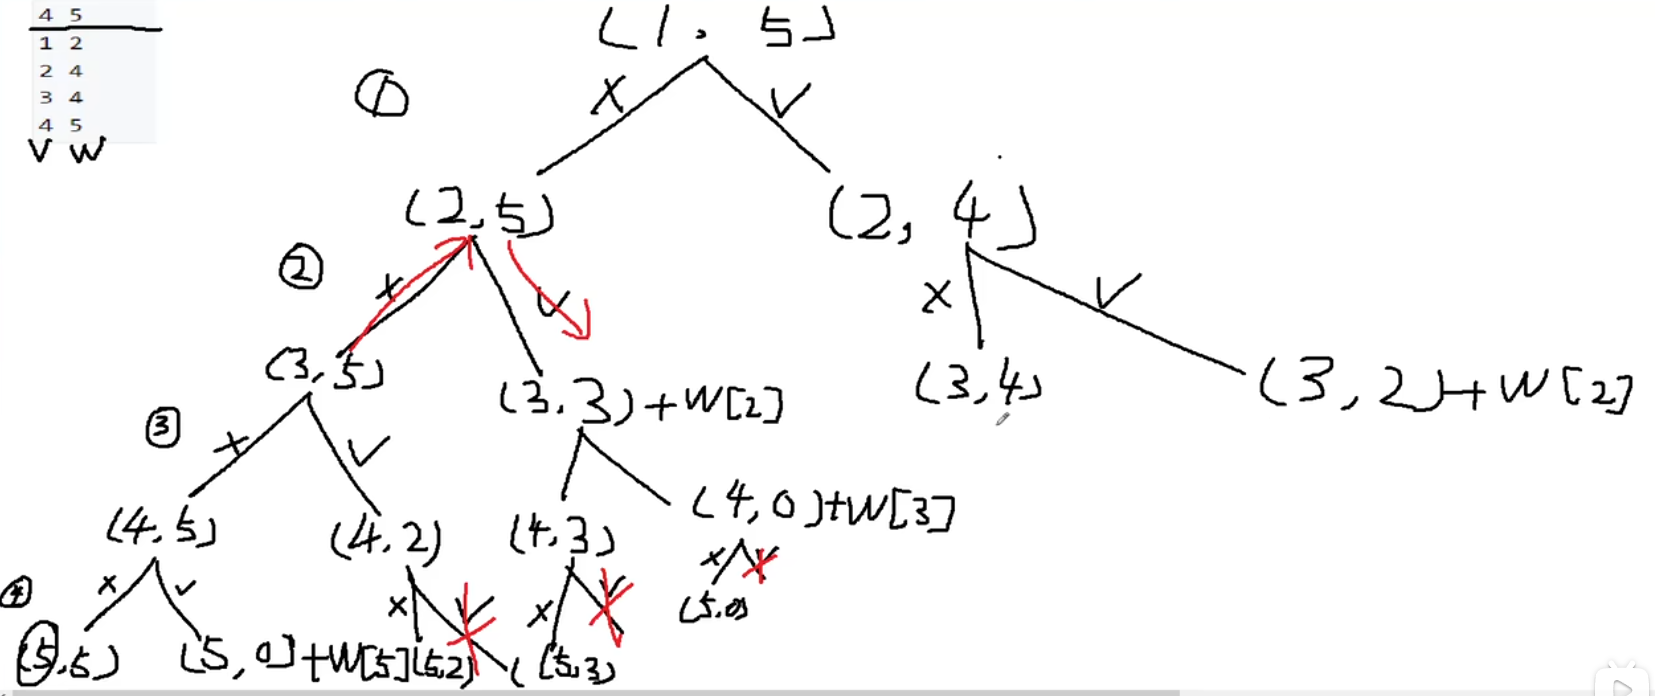 4 5
1 2
2 4
3 4
4 5
V W
(1, 5)
①
X √
(2,5) (2, 4)
②
X √ X √
(3,5) (3,3)+W[2] (3,4) (3,2)+W[2]
③
X √
(4,5) (4,2) (4,3) (4,0)+W[3]
④
X √ X √ X √ X √
(5,5) (5,0]+W[5] (5,2) ( (5,3) (5,0)